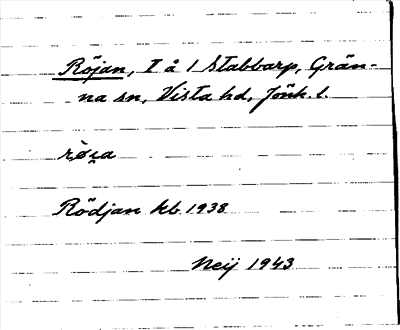 Röjan, T å 1 Stabbarp, Grän-
na sn, Vista hd, Jönk. l.
Rödjan kb 1938
Neij 1943